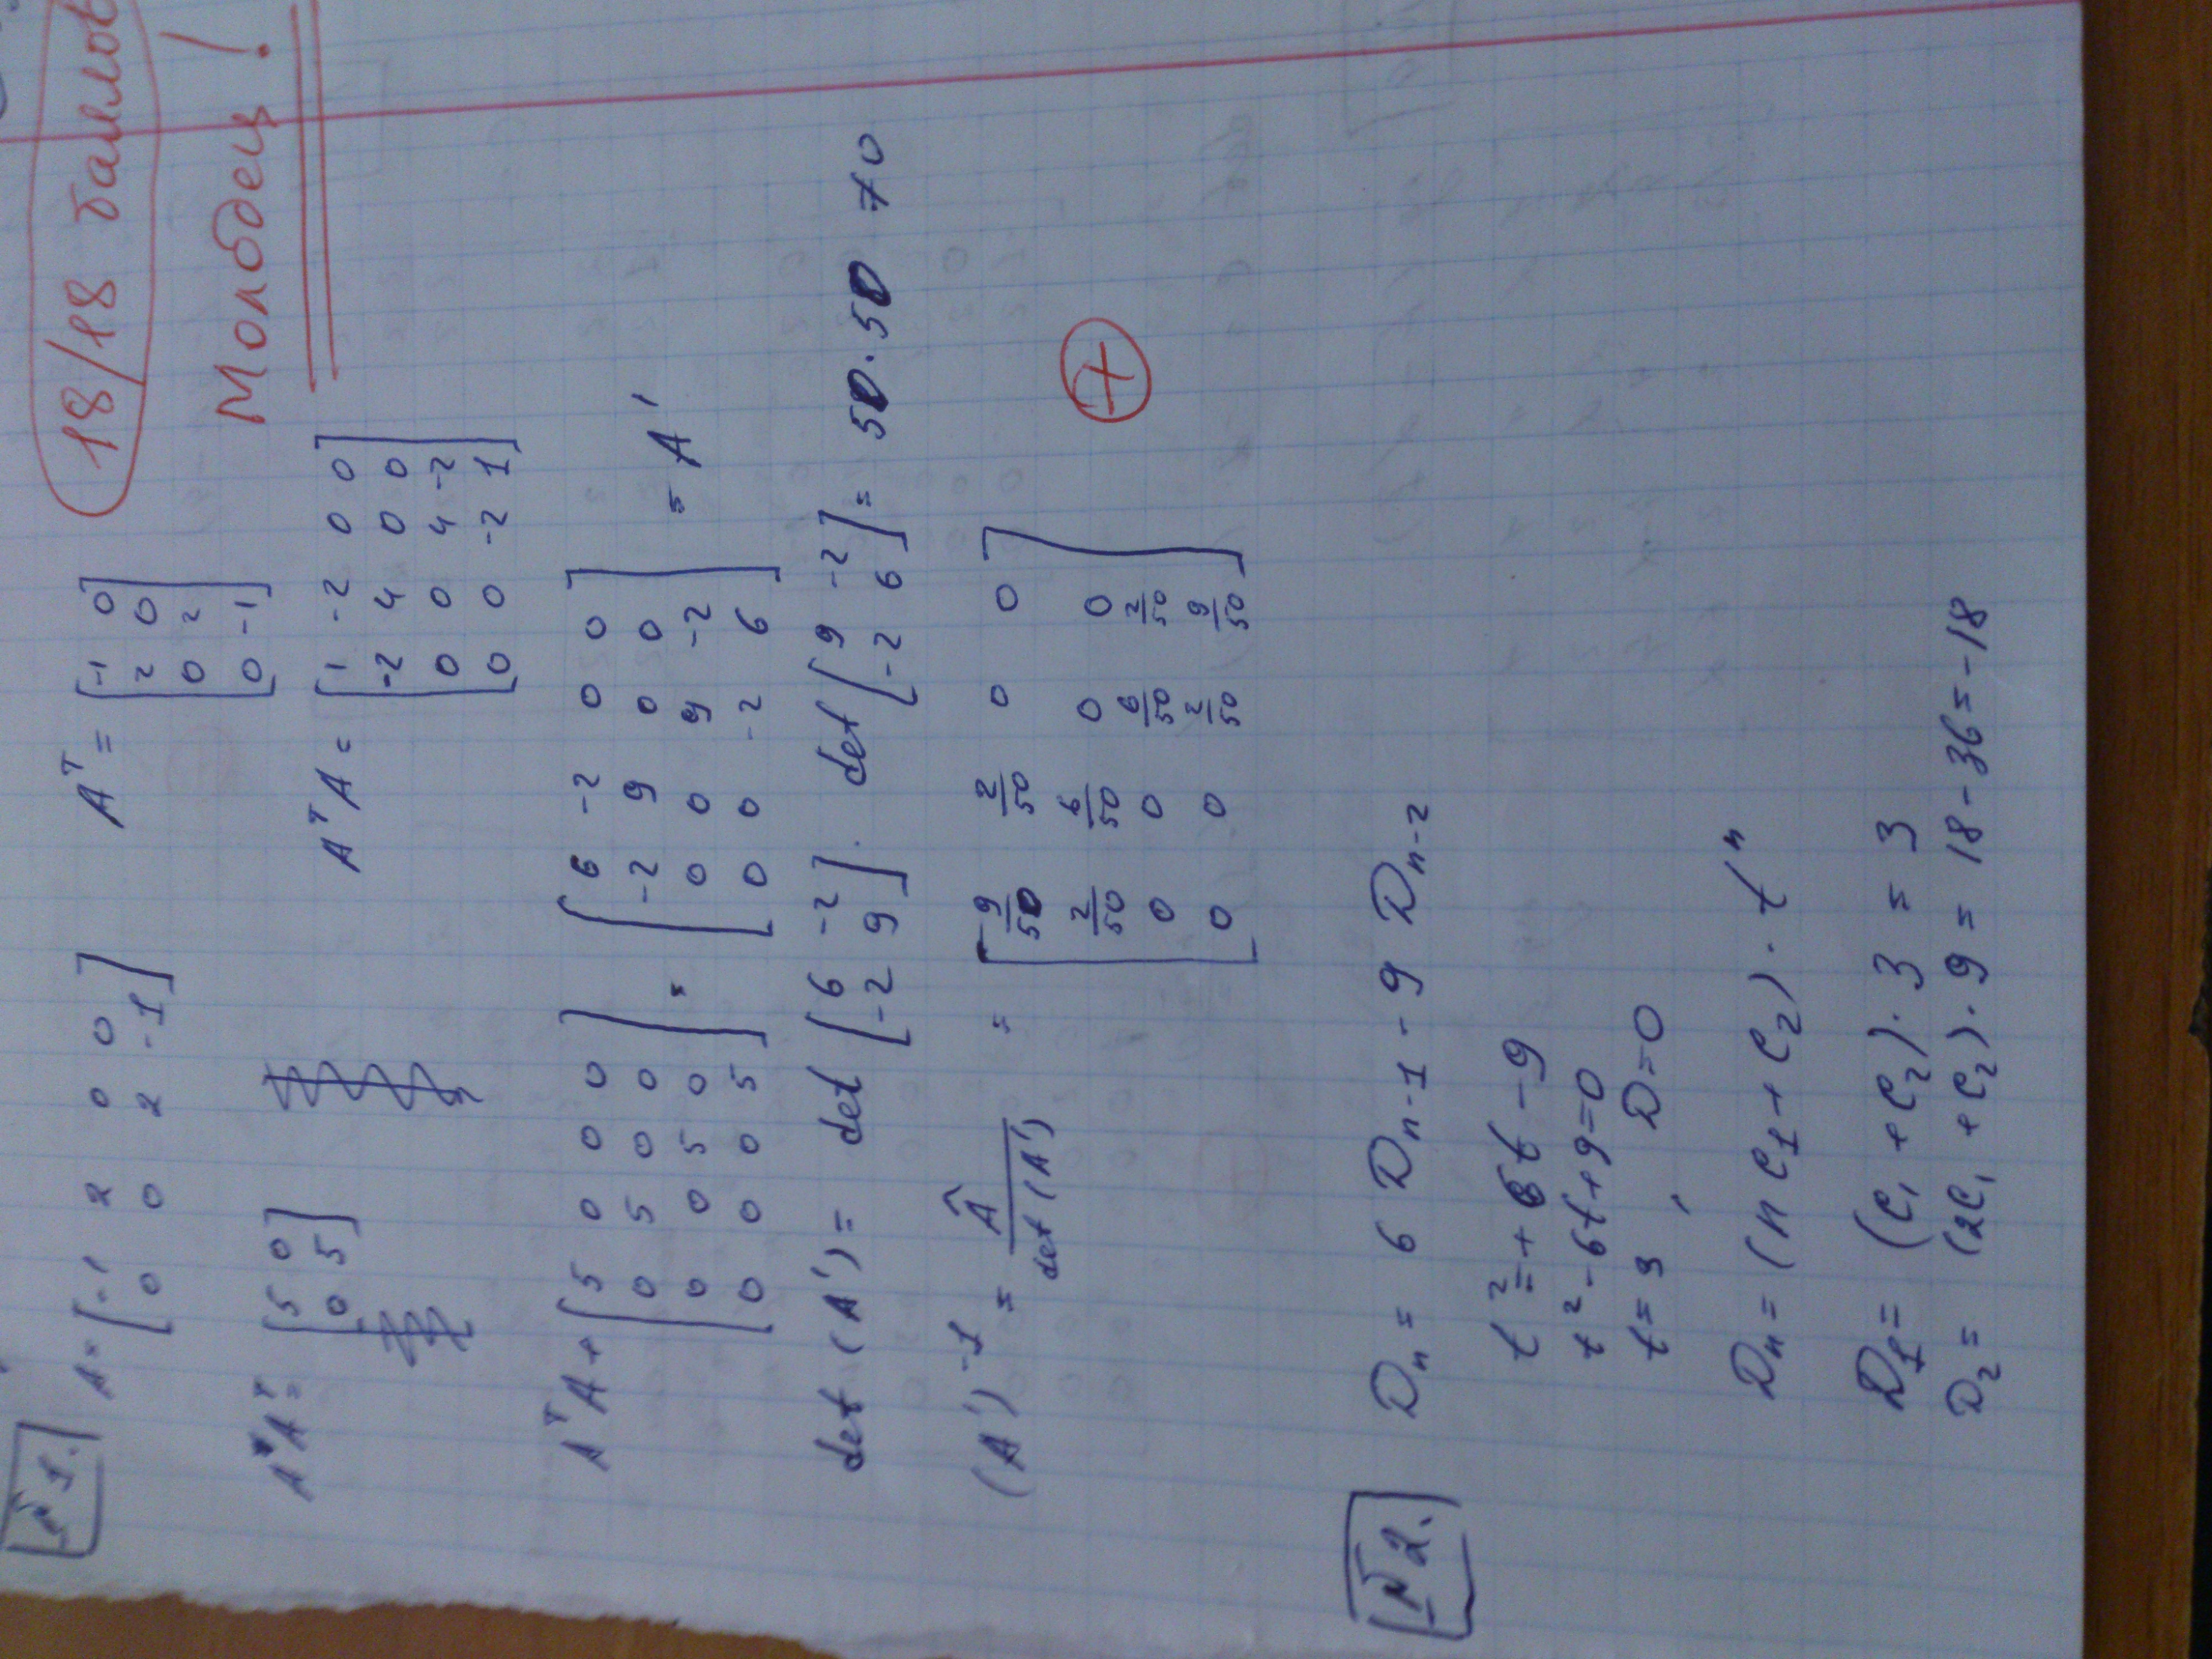 18/18 баллов
Молодец!
№1. A = [-1 2 0 0; 0 0 2 -1] A^T = [-1 0; 2 0; 0 2; 0 -1]
A A^T = [5 0; 0 5] A^T A = [1 -2 0 0; -2 4 0 0; 0 0 4 -2; 0 0 -2 1]
A^T A + [5 0 0 0; 0 5 0 0; 0 0 5 0; 0 0 0 5] = [6 -2 0 0; -2 9 0 0; 0 0 9 -2; 0 0 -2 6] = A'
det (A') = det [6 -2; -2 9] · det [9 -2; -2 6] = 50·50 ≠ 0
(A')^-1 = Â / det (A') = [9/50 2/50 0 0; 2/50 6/50 0 0; 0 0 6/50 2/50; 0 0 2/50 9/50]
+
№2. D_n = 6 D_n-1 - 9 D_n-2
t^2 = + 6t - 9
t^2 - 6t + 9 = 0
t = 3, D = 0
D_n = (n C_1 + C_2) · t^n
D_1 = (C_1 + C_2) · 3 = 3
D_2 = (2C_1 + C_2) · 9 = 18 - 36 = -18